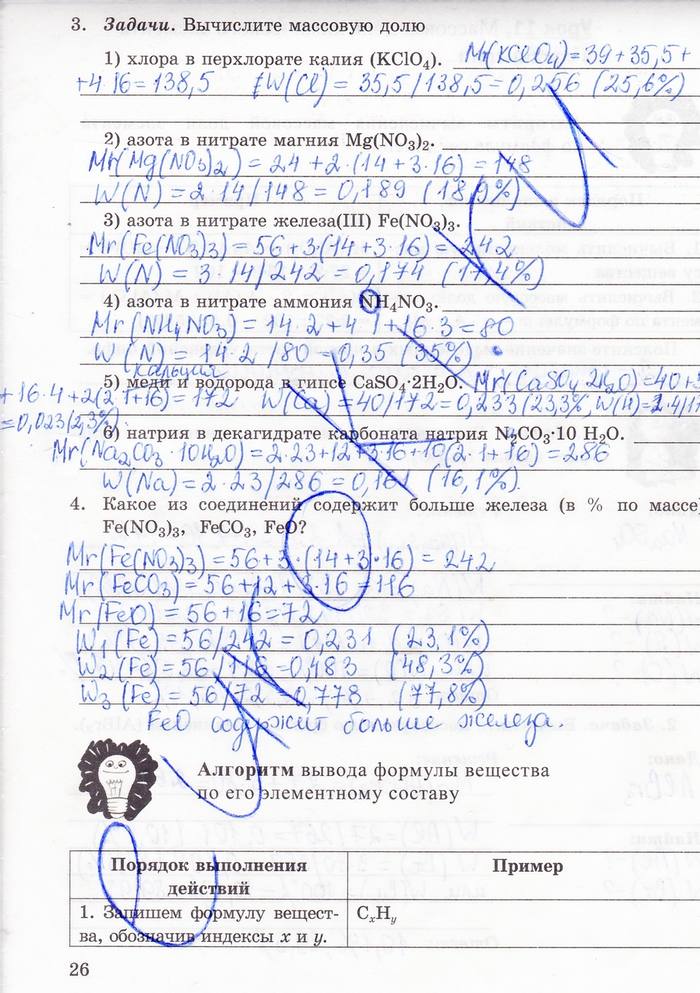 3. Задачи. Вычислите массовую долю
1) хлора в перхлорате калия (KClO₄). Mr(KClO₄)=39+35,5+
+4·16=138,5 W(Cl) = 35,5/138,5=0,256 (25,6%)
2) азота в нитрате магния Mg(NO₃)₂.
Mr(Mg(NO₃)₂) = 24+2·(14+3·16)=148
W(N) = 2·14/148=0,189 (18,9%)
3) азота в нитрате железа(III) Fe(NO₃)₃.
Mr(Fe(NO₃)₃)=56+3·(14+3·16)=242
W(N)= 3·14/242=0,174 (17,4%)
4) азота в нитрате аммония NH₄NO₃.
Mr(NH₄NO₃)=14·2+4·1+16·3=80
W(N)=14·2/80=0,35 (35%)
кальция
5) меди и водорода в гипсе CaSO₄·2H₂O. Mr(CaSO₄·2H₂O)=40+3
+16·4+2(2·1+16)=172 W(Ca)=40/172=0,233(23,3%, W(H)=2·4/17
=0,023(2,3%).
6) натрия в декагидрате карбоната натрия Na₂CO₃·10 H₂O.
Mr(Na₂CO₃·10H₂O)=2·23+12+3·16+10(2·1+16)=286
W(Na)=2·23/286=0,161 (16,1%).
4. Какое из соединений содержит больше железа (в % по массе)
Fe(NO₃)₃, FeCO₃, FeO?
Mr(Fe(NO₃)₃)=56+3·(14+3·16)=242
Mr(FeCO₃)=56+12+3·16=116
Mr(FeO)=56+16=72
W₁(Fe)=56/242=0,231 (23,1%)
W₂(Fe)=56/116=0,483 (48,3%)
W₃(Fe)=56/72=0,778 (77,8%)
FeO содержит больше железа.
Алгоритм вывода формулы вещества
по его элементному составу
Порядок выполнения Пример
действий
1. Запишем формулу вещест- CₓHᵧ
ва, обозначив индексы x и y.
26